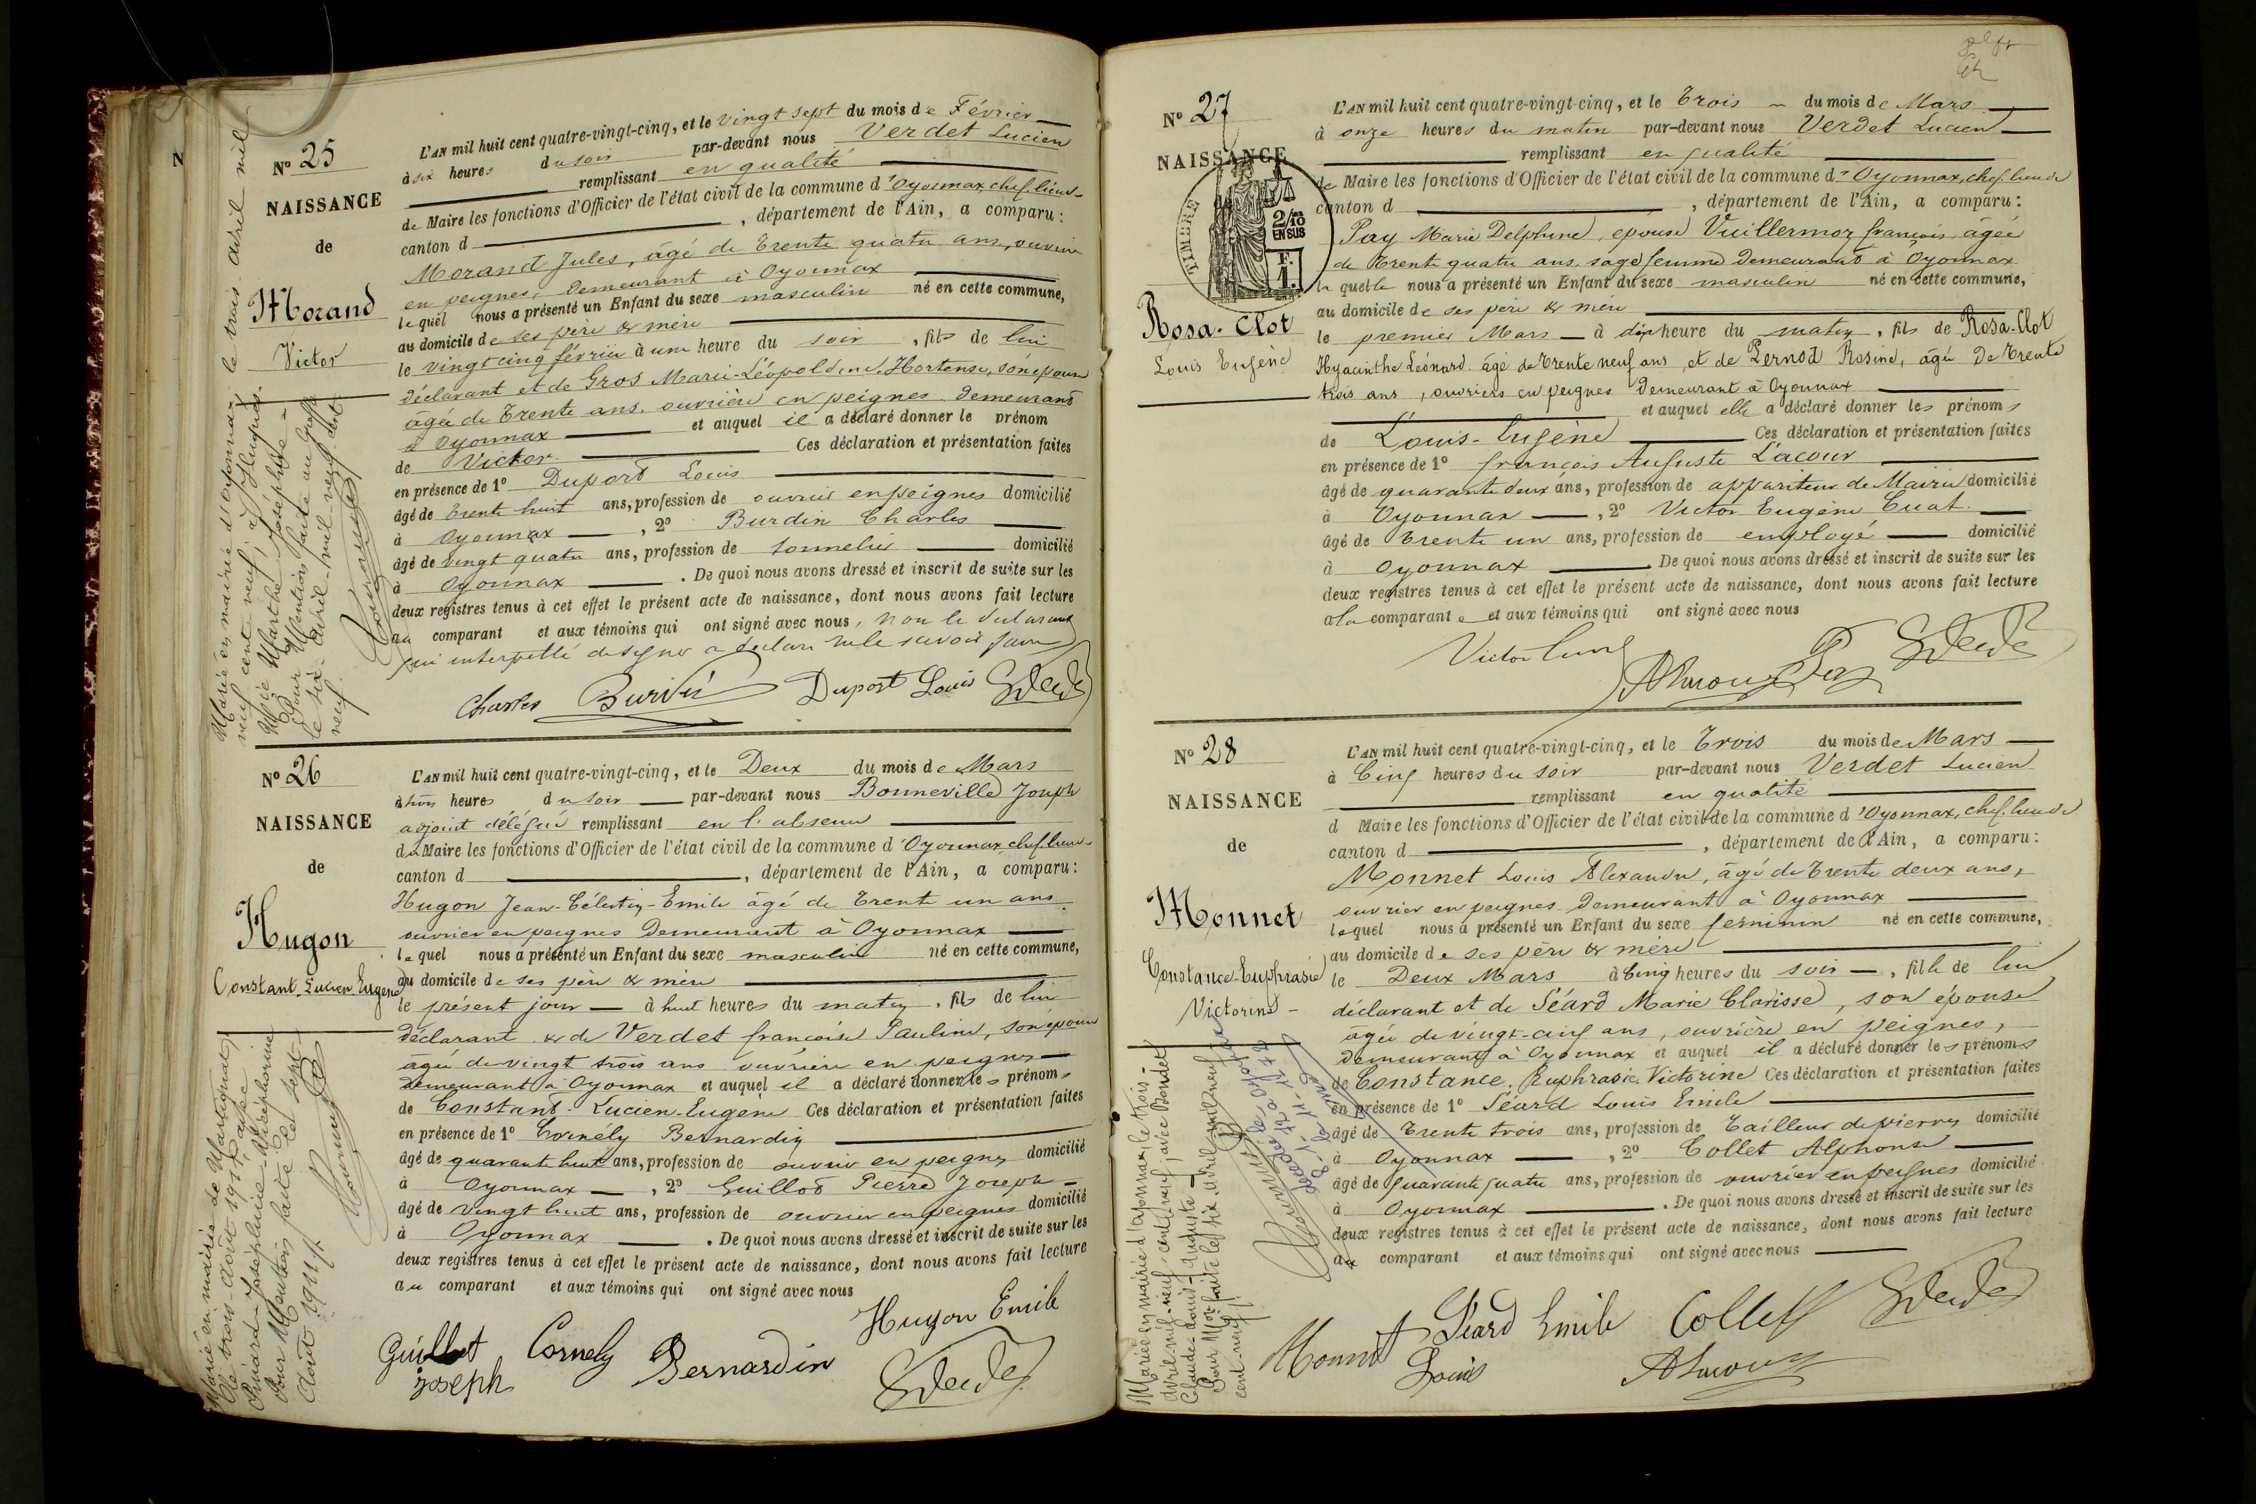 N
N° 25
NAISSANCE
de
Morand
Victor
L'AN mil huit cent quatre-vingt-cinq, et le vingt sept du mois de Février
à six heures du soir par-devant nous Verdet Lucien
remplissant en qualité
de Maire les fonctions d'Officier de l'état civil de la commune d'Oyonnax, chef lieu de
canton d , département de l'Ain, a comparu :
Morand Jules, âgé de Trente quatre ans, ouvrier
en peignes, demeurant à Oyonnax
lequel nous a présenté un Enfant du sexe masculin né en cette commune,
au domicile de ses père & mère
le vingt cinq février à une heure du soir , fils de lui
déclarant et de Gros Marie-Léopoldine Hortense, son épouse
âgée de Trente ans, ouvrière en peignes demeurant
à Oyonnax et auquel il a déclaré donner le prénom
de Victor Ces déclaration et présentation faites
en présence de 1° Duport Louis
âgé de Trente huit ans, profession de ouvrier en peignes domicilié
à Oyonnax , 2° Burdin Charles
âgé de vingt quatre ans, profession de tonnelier domicilié
à Oyonnax . De quoi nous avons dressé et inscrit de suite sur les
deux registres tenus à cet effet le présent acte de naissance, dont nous avons fait lecture
au comparant et aux témoins qui ont signé avec nous, non le déclarant
qui interpellé de signer a déclaré ne le savoir faire
Charles Burdin Duport Louis
Marié en mairie d'Oyonnax le trois avril mil
neuf cent neuf, à Hugues
Marie Marthe Joséphine
Pour Mention faite au Greffe
le six avril mil neuf cent
neuf.
N° 26
NAISSANCE
de
Hugon
Constant Lucien Eugène
L'AN mil huit cent quatre-vingt-cinq, et le Deux du mois de Mars
à trois heures du soir par-devant nous Bonneville Joseph
adjoint délégué remplissant en l'absence
du Maire les fonctions d'Officier de l'état civil de la commune d'Oyonnax, chef lieu de
canton d , département de l'Ain, a comparu :
Hugon Jean-Célestin-Emile âgé de Trente un ans
ouvrier en peignes demeurant à Oyonnax
lequel nous a présenté un Enfant du sexe masculin né en cette commune,
au domicile de ses père & mère
le présent jour à huit heures du matin , fils de lui
déclarant & de Verdet françoise Pauline, son épouse
âgée de vingt trois ans ouvrière en peignes
demeurant à Oyonnax et auquel il a déclaré donner les prénoms
de Constant-Lucien-Eugène Ces déclaration et présentation faites
en présence de 1° Cornély Bernardin
âgé de quarante huit ans, profession de ouvrier en peignes domicilié
à Oyonnax , 2° Guillot Pierre Joseph
âgé de vingt huit ans, profession de ouvrier en peignes domicilié
à Oyonnax . De quoi nous avons dressé et inscrit de suite sur les
deux registres tenus à cet effet le présent acte de naissance, dont nous avons fait lecture
au comparant et aux témoins qui ont signé avec nous
Hugon Emile
Guillot Cornely Bernardin
Joseph
Marié en mairie de Martignat,
le trois Août 1911, avec
Pinard Joséphine
Pour Mention faite le sept
Août 1911.
N° 27
NAISSANCE
TIMBRE
2/10
EN SUS
F.
1.
Rosa-Clot
Louis Eugène
L'AN mil huit cent quatre-vingt-cinq, et le Trois du mois de Mars
à onze heures du matin par-devant nous Verdet Lucien
remplissant en qualité
de Maire les fonctions d'Officier de l'état civil de la commune d'Oyonnax, chef lieu de
canton d , département de l'Ain, a comparu :
Pay Marie Delphine, épouse Vuillermoz françois âgée
de Trente quatre ans, sage femme demeurant à Oyonnax
laquelle nous a présenté un Enfant du sexe masculin né en cette commune,
au domicile de ses père & mère
le premier Mars à dix heure du matin , fils de Rosa-Clot
Hyacinthe Léonard âgé de Trente neuf ans et de Pernod Rosine, âgée De Trente
trois ans, ouvriers en peignes demeurant à Oyonnax
et auquel elle a déclaré donner les prénoms
de Louis-Eugène Ces déclaration et présentation faites
en présence de 1° françois Auguste Lacour
âgé de quarante deux ans, profession de appariteur de Mairie domicilié
à Oyonnax , 2° Victor Eugène Cuat
âgé de Trente un ans, profession de employé domicilié
à Oyonnax . De quoi nous avons dressé et inscrit de suite sur les
deux registres tenus à cet effet le présent acte de naissance, dont nous avons fait lecture
a la comparante et aux témoins qui ont signé avec nous
N° 28
NAISSANCE
de
Monnet
Constance Euphrasie
Victorine
L'AN mil huit cent quatre-vingt-cinq, et le Trois du mois de Mars
à Cinq heures du soir par-devant nous Verdet Lucien
remplissant en qualité
d Maire les fonctions d'Officier de l'état civil de la commune d'Oyonnax, chef lieu de
canton d , département de l'Ain, a comparu :
Monnet Louis Alexandre, âgé de Trente deux ans,
ouvrier en peignes demeurant à Oyonnax
lequel nous a présenté un Enfant du sexe féminin né en cette commune,
au domicile de ses père & mère
le Deux Mars à Cinq heures du soir , fille de lui
déclarant et de Séard Marie Clarisse, son épouse
âgée de vingt-cinq ans, ouvrière en peignes,
demeurant à Oyonnax et auquel il a déclaré donner les prénoms
de Constance, Euphrasie Victorine Ces déclaration et présentation faites
en présence de 1° Séard Louis Emile
âgé de Trente trois ans, profession de Tailleur de pierres domicilié
à Oyonnax , 2° Collet Alphonse
âgé de quarante quatre ans, profession de ouvrier en peignes domicilié
à Oyonnax . De quoi nous avons dressé et inscrit de suite sur les
deux registres tenus à cet effet le présent acte de naissance, dont nous avons fait lecture
au comparant et aux témoins qui ont signé avec nous
Monnet Louis Séard Emile Collet
Mariée en mairie d'Oyonnax, le trois
avril mil neuf cent neuf, avec Bondet
Claude Louis Auguste
Pour Mon faite le six avril mil neuf
cent neuf.